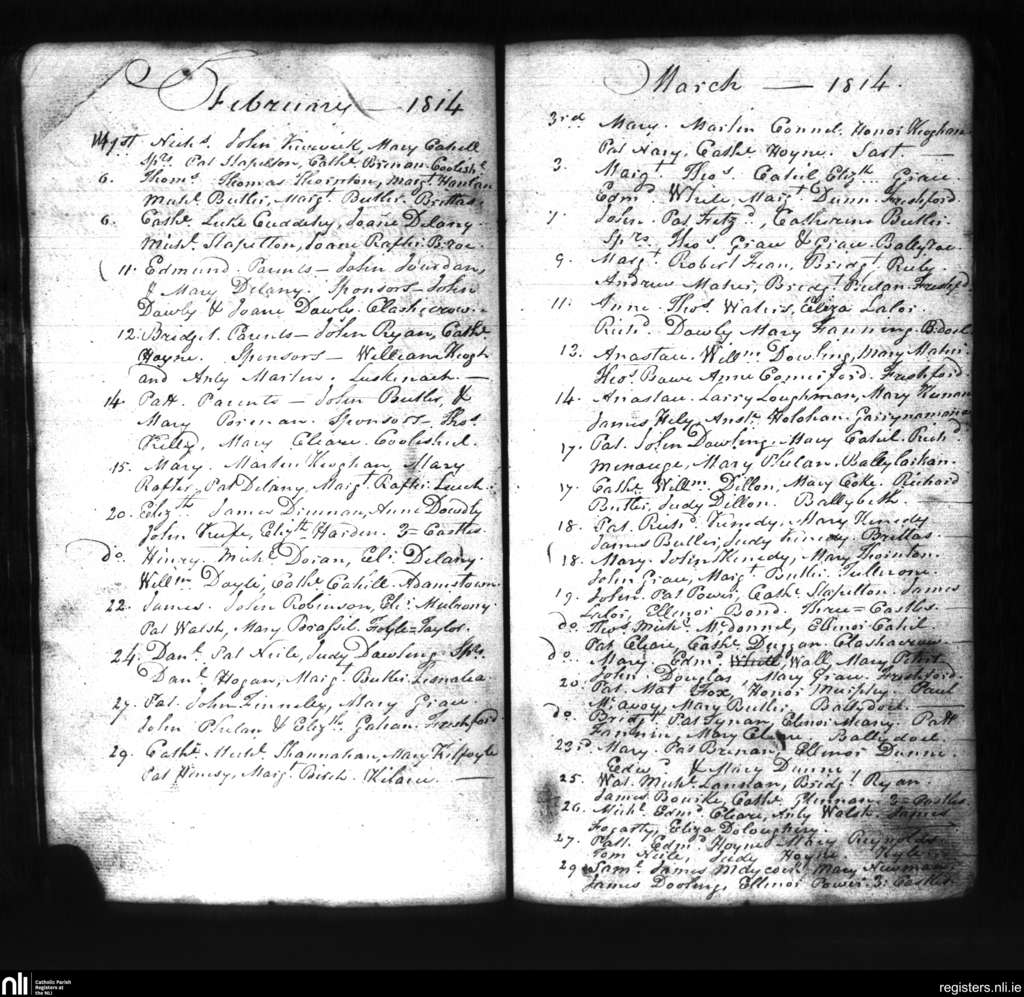 February — 1814
Nichs. John Kurwick, Mary Cahill
Sprs. Pat Stapelton, Cathe. Brenan Coolish
6. Thoms. Thomas Thornton, Margt. Hanlan
Michl. Butler, Margt. Butler. Brittas.
6. Cathe. Luke Cuddehy, Joane Delany
Michl. Stapelton, Joane Rafter. Broe.
11. Edmund. Parents — John Jourdan,
& Mary Delany. Sponsors — John
Dawly & Joane Dawly. Clashcrow.
12. Bridget. Parents — John Ryan, Cathe.
Hoyne. Sponsors — William Keogh
and Anty Martin. Luskinach. —
14. Patt. Parents — John Butler, &
Mary Brenan. Sponsors — Thos.
Kelly, Mary Cleare. Coolishil.
15. Mary. Martin Keoghan, Mary
Rafter, Pat Delany, Margt. Rafter.
20. Elizth. James Dinnan, Anne Dowdly
John Keefe, Elizth. Harden. 3 = Castles
do. Henry. Michl. Doran, Eli: Delany.
Willm. Doyle, Cathe. Cahill. Adamstown.
22. James. John Robinson, Eli: Mulrony.
Pat Walsh, Mary Brassil. Foyle = Taylor.
24. Danl. Pat Neile, Judy Dawling. Sprs.
Danl. Hogan, Margt. Butler. Lisnalea.
27. Pat. John Finneley, Mary Grau
John Phelan & Elizth. Gahan. Freshford
29. Cathe. Michl. Shannahan, Mary Kilfoyle
Pat Henesy, Margt. Birch. Kilare. —
March — 1814.
3rd Mary. Martin Connel. Honor Keoghan
Pat Nary. Cathe. Hoyne. Tart —
3. Margt. Thos. Cahil, Elizth. Grau.
Edmd. White, Margt. Dunn. Freshford
7. John. Pat Fitzd., Catherine Butler.
Sprs. Thos. Grau & Grau. Ballyroe.
9. Margt. Robert Fean, Bridgt. Ruby.
Andrew Maher, Bridgt. Phelan. Freshfd.
11. Anne. Thos. Waters, Eliza Lalor.
Richd. Dawly Mary Fanning. B:doel
13. Anastau. Willm. Dowling, Mary Maher.
Thos. Bawe Anne Comerford. Freshford.
14. Anastau. Larry Loughman, Mary Kenan
James Hely, Anste. Holohan. Garrynamana
17. Pat. John Dawling, Mary Cahil. Richd.
Menauge, Mary Phelan. Ballylarkan.
17. Cathe. Willm. Dillon, Mary Coke. Richard
Butler, Judy Dillon. Ballybeth
18. Pat. Richd. Kenedy. Mary Kenedy
James Butler, Judy Kenedy. Brittas.
18. Mary. John Kenedy, Mary Thornton
John Grau, Margt. Butler. Tullerone.
19. John. Pat Power, Cathe. Stapelton. James
Lalor, Ellenor Bond. Three = Castles.
do. Thos. Michl. McDonnel, Ellenor Cahil
Pat Cleare, Cathe. Duggan. Clashacrow.
do. Mary. Edmd. Wall, Mary
John Douglas, Mary Grau. Freshford
20. Pat. Mat Fox, Honor Murphy. Paul
McAvoy, Mary Butler. Ballydoel.
do. Bridgt. Pat Synan, Elenor Meany. Patt
Fannin, Mary Cleare. Ballydoel.
23rd. Mary. Pat Brenan, Ellenor Dunne.
Edwd. & Mary Dunne
25. Wat. Michl. Lannan, Bridgt. Ryan.
James Bourke, Cathe. Glennan. 3 = Castles.
26. Michl. Edmd. Cleare, Anty Walsh. James
Fogarty, Eliza Doloughery.
27. Patt. Edmd. Hoyne Mary Reynolds
Tom Neile, Judy Hoyne. Kyle
29 Saml. James Maycock Mary Newman
James Dooling, Ellenor Power. 3: Castles.
nli
Catholic Parish
Registers at
the NLI
registers.nli.ie